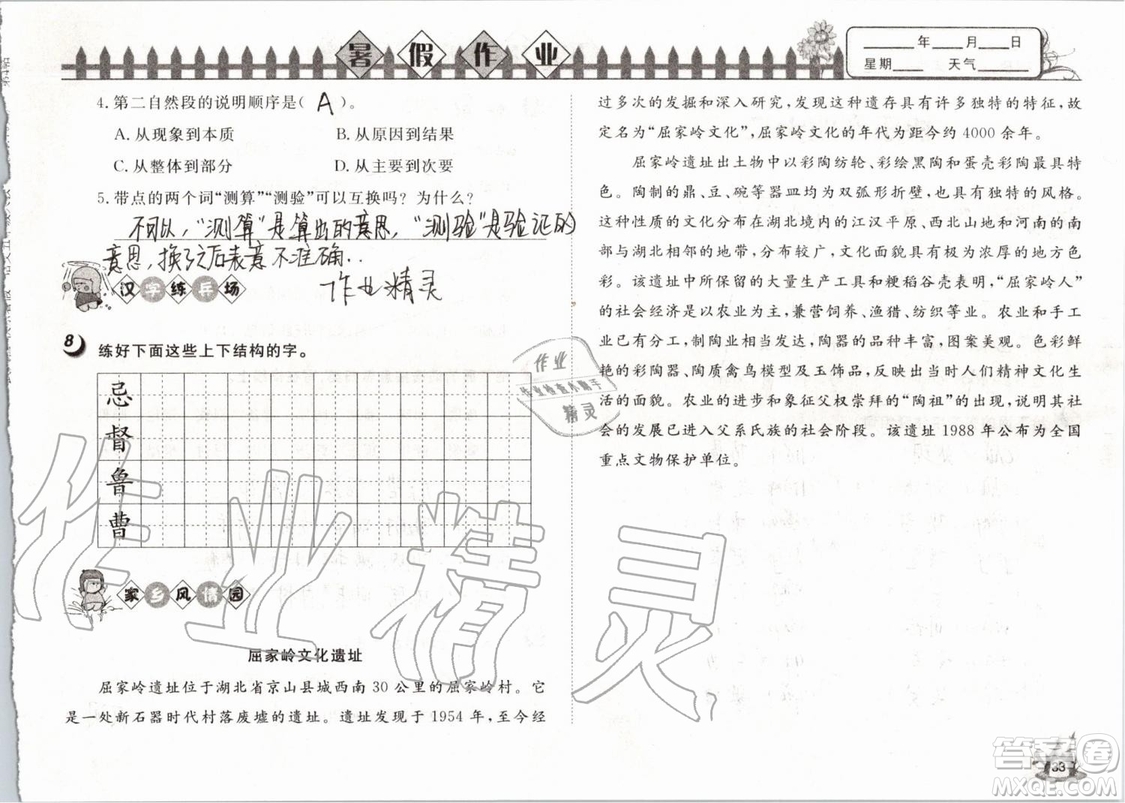 暑假作业
____年__月__日
星期____ 天气____
4. 第二自然段的说明顺序是( A )。
A. 从现象到本质 B. 从原因到结果
C. 从整体到部分 D. 从主要到次要
5. 带点的两个词“测算”“测验”可以互换吗？为什么？
不可以，“测算”是算出的意思，“测验”是验证的
意思，换了之后表意不准确..
作业精灵
汉字练兵场
8 练好下面这些上下结构的字。
忌
督
鲁
曹
家乡风情园
屈家岭文化遗址
屈家岭遗址位于湖北省京山县城西南 30 公里的屈家岭村。它
是一处新石器时代村落废墟的遗址。遗址发现于 1954 年，至今经
过多次的发掘和深入研究，发现这种遗存具有许多独特的特征，故
定名为“屈家岭文化”，屈家岭文化的年代为距今约 4000 余年。
屈家岭遗址出土物中以彩陶纺轮、彩绘黑陶和蛋壳彩陶最具特
色。陶制的鼎、豆、碗等器皿均为双弧形折壁，也具有独特的风格。
这种性质的文化分布在湖北境内的江汉平原、西北山地和河南的南
部与湖北相邻的地带，分布较广，文化面貌有极为浓厚的地方色
彩。该遗址中所保留的大量生产工具和粳稻谷壳表明，“屈家岭人”
的社会经济以农业为主，兼营饲养、渔猎、纺织等业。农业和手工
业已有分工，制陶业较为突出，陶器的品种丰富，图案美观。色彩鲜
艳的彩陶器、陶质禽鸟模型及玉饰品，反映了当时人们精神文化生
活的面貌。农业的进步和象征父权崇拜的“陶祖”的出现，说明其社
会的发展已进入父系氏族的社会阶段。该遗址 1988 年公布为全国
重点文物保护单位。
作业
作业检查小助手
精灵
作业精灵
33
答案圈
MXQE.COM